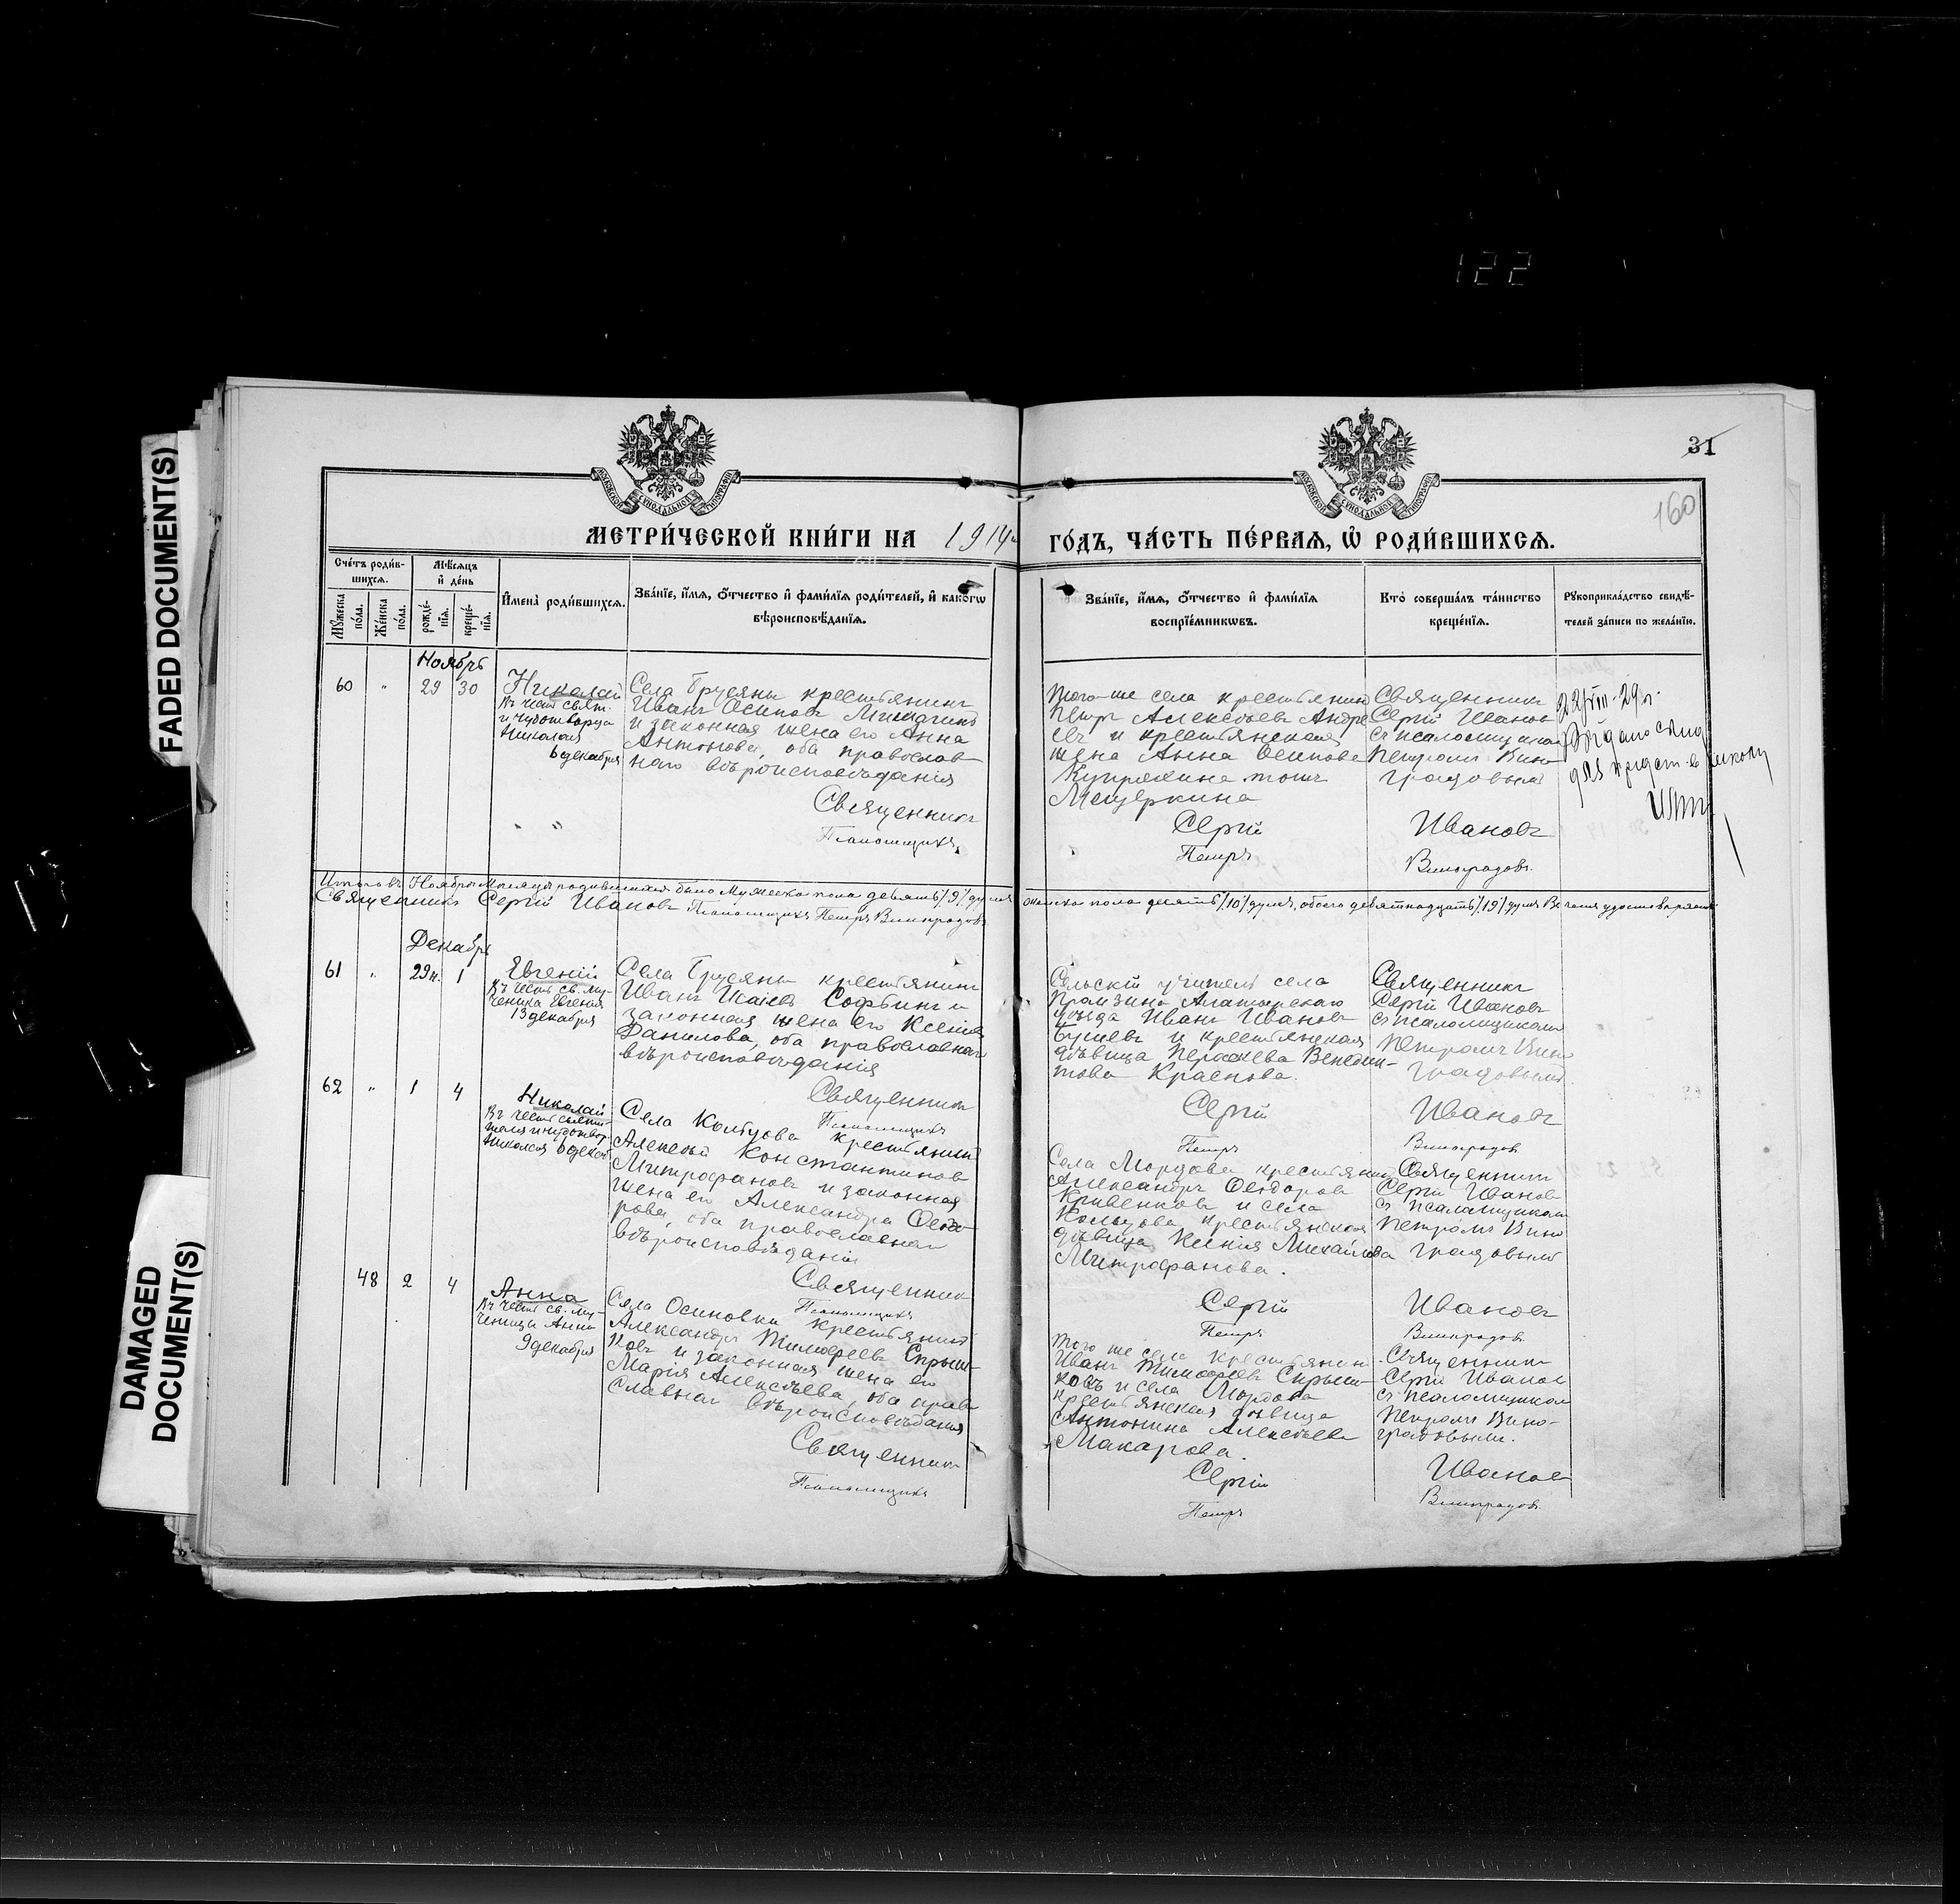 122
FADED DOCUMENT(S)
DAMAGED
DOCUMENT(S)
31
160
МЕТРИ́ЧЕСКОЙ КНИ́ГИ НА 1914
ГО́ДЪ, ЧА́СТЬ ПЕ́РВАѦ, Ѡ҆ РОДИ́ВШИХСѦ.
Сче́тъ роди́в-
шихсѧ.
Мꙋ́жеска по́ла.
Же́нска по́ла.
Мѣ́сѧцъ
и҆ де́нь
рожде́-
нїѧ.
креще́-
нїѧ.
И҆мена̀ роди́вшихсѧ.
Зва́нїе, и҆́мѧ, ѻ҆́тчество и҆ фами́лїѧ роди́телей, и҆ како́гѡ
вѣроисповѣ́данїѧ.
Зва́нїе, и҆́мѧ, ѻ҆́тчество и҆ фами́лїѧ
воспрїе́мникѡвъ.
Кто̀ соверша́лъ та́инство
креще́нїѧ.
Рꙋкоприкла́дство свидѣ́-
телей за́писи по жела́нїю.
Ноябрь
60 " 29 30
Николай
Въ честь свят.
и Чудотворца
Николая
6 декабря
Села Брусяны крестьянинъ
Иванъ Осиповъ
и законная жена его Анна
Антонова, оба православ
наго вѣроисповѣданія
Священникъ
Псаломщикъ
Того-же села крестьянин
Петръ Алексѣевъ Андре
евъ и крестьянская
жена Анна Осипова
Мещеркина
Сергій
Петръ
Священникъ
Сергій Ивановъ
съ псаломщикомъ
Петромъ Вино
градовымъ
Ивановъ
Виноградовъ.
22/VIII-29 г.
Выдано
для предст. в школу
Итого въ Ноябрѣ Мѣсяцѣ родившихся было Мужеска пола девять /9/ душъ
женска пола десять /10/ душъ, обоего девятнадцать /19/ душъ. Въ чемъ удостовѣряемъ:
Священникъ Сергій Ивановъ Псаломщикъ Петръ Виноградовъ
Декабрь
61 " 29н. 1
Евгеній
Въ честь св. му-
ченика Евгенія
13 декабря
Села Брусяны крестьянинъ
Иванъ Исаіевъ Софьинъ и
законная жена его Ксенія
Данилова, оба православнаго
вѣроисповѣданія
Священникъ
Псаломщикъ
Сельскій учитель села
Промзина Алатырскаго
уѣзда Иванъ Ивановъ
и крестьянская
дѣвица Параскева Венедик-
това Краснова.
Сергій
Петръ
Священникъ
Сергій Ивановъ
съ псаломщикомъ
Петромъ Вино
градовымъ.
Ивановъ
Виноградовъ
62 " 1 4
Николай
Въ честь святи-
теля и чудотвор.
Николая 6 декаб.
Села Кольцова крестьянинъ
Алексѣй Константинов
Митрофановъ и законная
жена его Александра Ѳеодо-
рова, оба православнаго
вѣроисповѣданія
Священникъ
Псаломщикъ
Села Мордова крестьянинъ
Александръ Ѳеодоровъ
Кривенковъ и села
Кольцова крестьянская
дѣвица Ксенія Михайлова
Митрофанова.
Сергій
Петръ
Священникъ
Сергій Ивановъ
съ псаломщикомъ
Петромъ Вино
градовымъ
Ивановъ
Виноградовъ
48 2 4
Анна
Въ честь св. му-
ченицы Анны
9 декабря
Села Осиновки крестьянинъ
Александръ Тимоѳеевъ Скрып-
ковъ и законная жена его
Марія Алексѣева, оба право
славнаго вѣроисповѣданія
Священникъ
Псаломщикъ
Того же села крестьянинъ
Иванъ Тимоѳеевъ Скрып-
ковъ и села Мордова
крестьянская дѣвица
Антонина Алексѣева
Макарова.
Сергій
Петръ
Священникъ
Сергій Ивановъ
съ псаломщикомъ
Петромъ Вино-
градовымъ.
Ивановъ
Виноградовъ